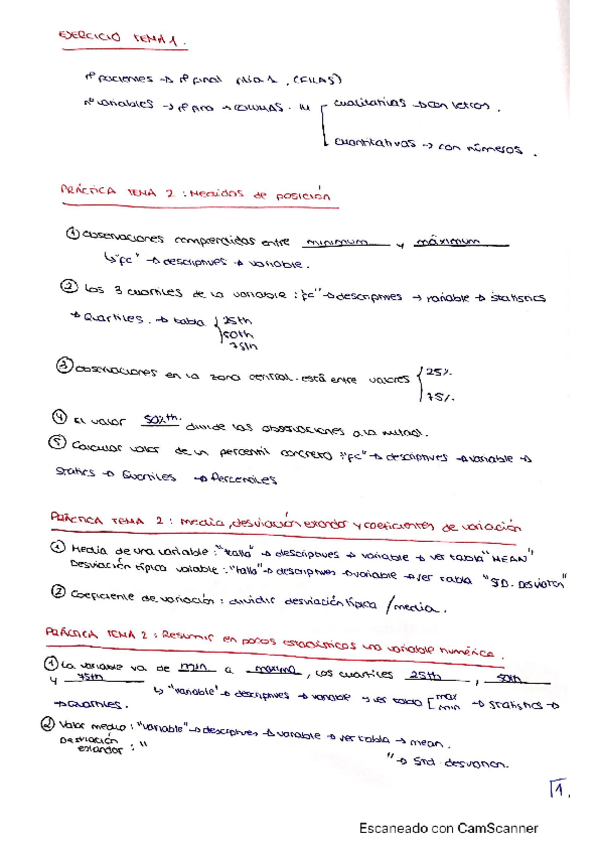 EJERCICIO TEMA 1.
nº pacientes → nº final fila 1. (FILAS)
nº variables → nº → COLUMNAS. cualitativas → con letras.
cuantitativas → con números.
PRÁCTICA TEMA 2: Medidas de posición
① observaciones comprendidas entre minimum y máximum
↳ "fc" → descriptives → variable.
② Los 3 cuartiles de la variable: "fc" → descriptives → variable → statistics
→ Quartiles. → tabla { 25th
50th
75th
③ observaciones en la zona central. está entre valores { 25%.
75%.
④ El valor 50%th. divide las observaciones a la mitad.
⑤ Calcular valor de un percentil concreto: "fc" → descriptives → variable →
Statics → Quartiles → Percentiles
PRÁCTICA TEMA 2: media, desviación estándar y coeficientes de variación
① Media de una variable: "talla" → descriptives → variable → ver tabla "MEAN"
Desviación típica variable: "talla" → descriptives → variable → ver tabla "SD. Desviation"
② Coeficiente de variación: dividir desviación típica / media.
PRÁCTICA TEMA 2: Resumir en pocos estadísticos una variable numérica.
① La variable va de min a maximo, los cuartiles 25th, 50th
y 75th
↳ "variable" → descriptives → variable → ver tabla [ max
min → statistics →
→ Quartiles.
② Valor medio: "variable" → descriptives → variable → ver tabla → mean.
Desviación
estandar: " " → Std. desviation.
1.
Escaneado con CamScanner